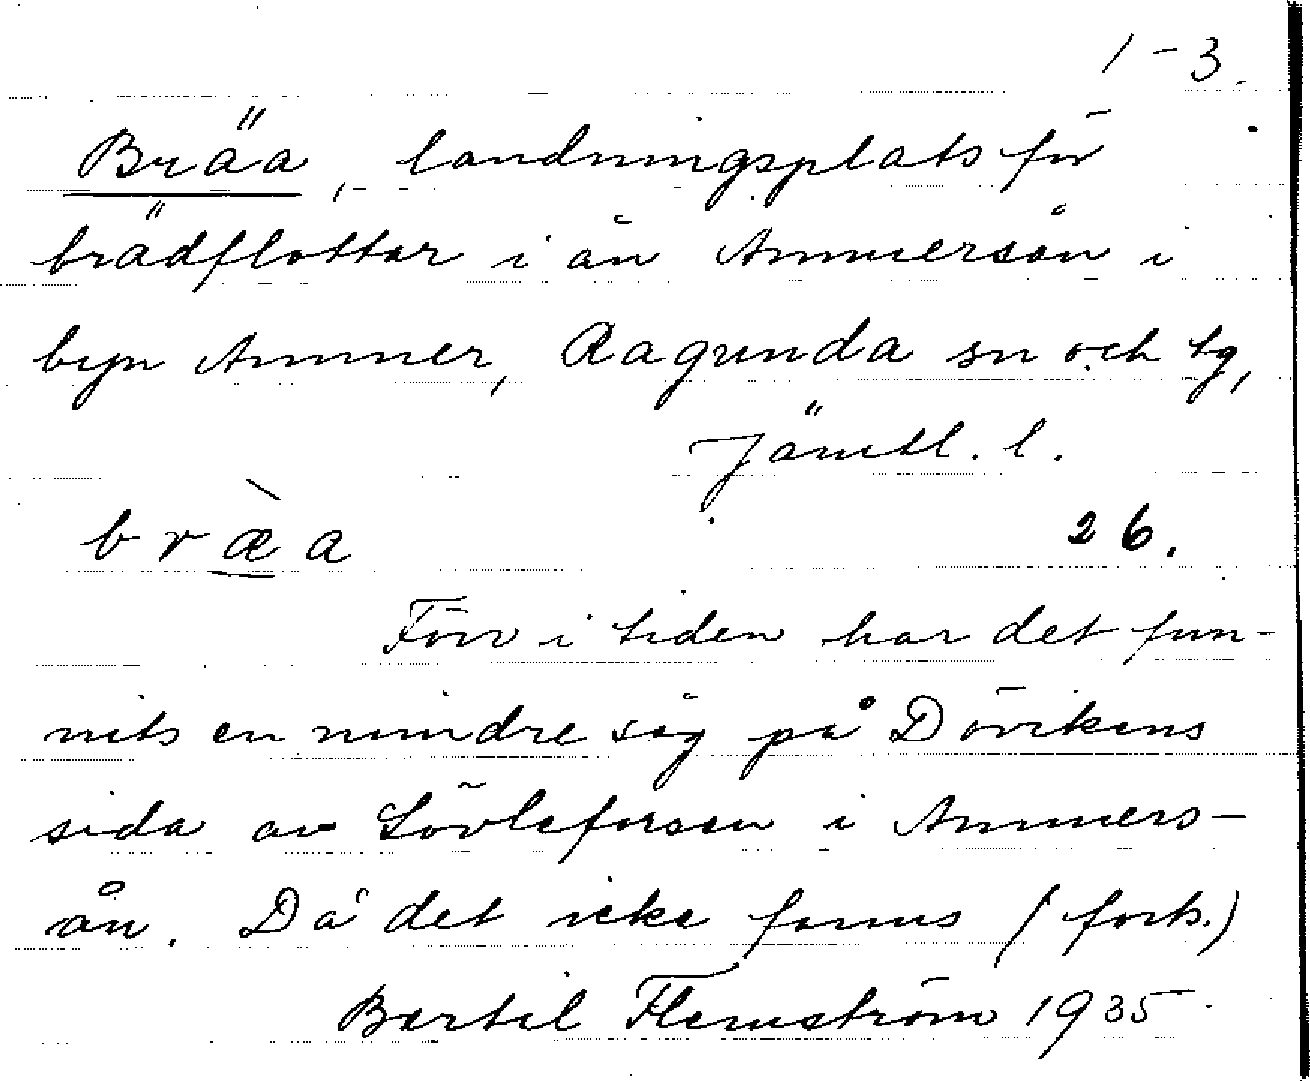 1-3.
Bräa, landningsplats för
brädflottar i ån Ammersån i
byn Ammer, Ragunda sn och tg,
Jämtl. l.
bræ̀a 26.
Förr i tiden har det fun-
nits en mindre såg på Dövikens
sida av Lövleforsen i Ammers-
ån. Då det icke fanns (forts.)
Bertil Flemström 1935